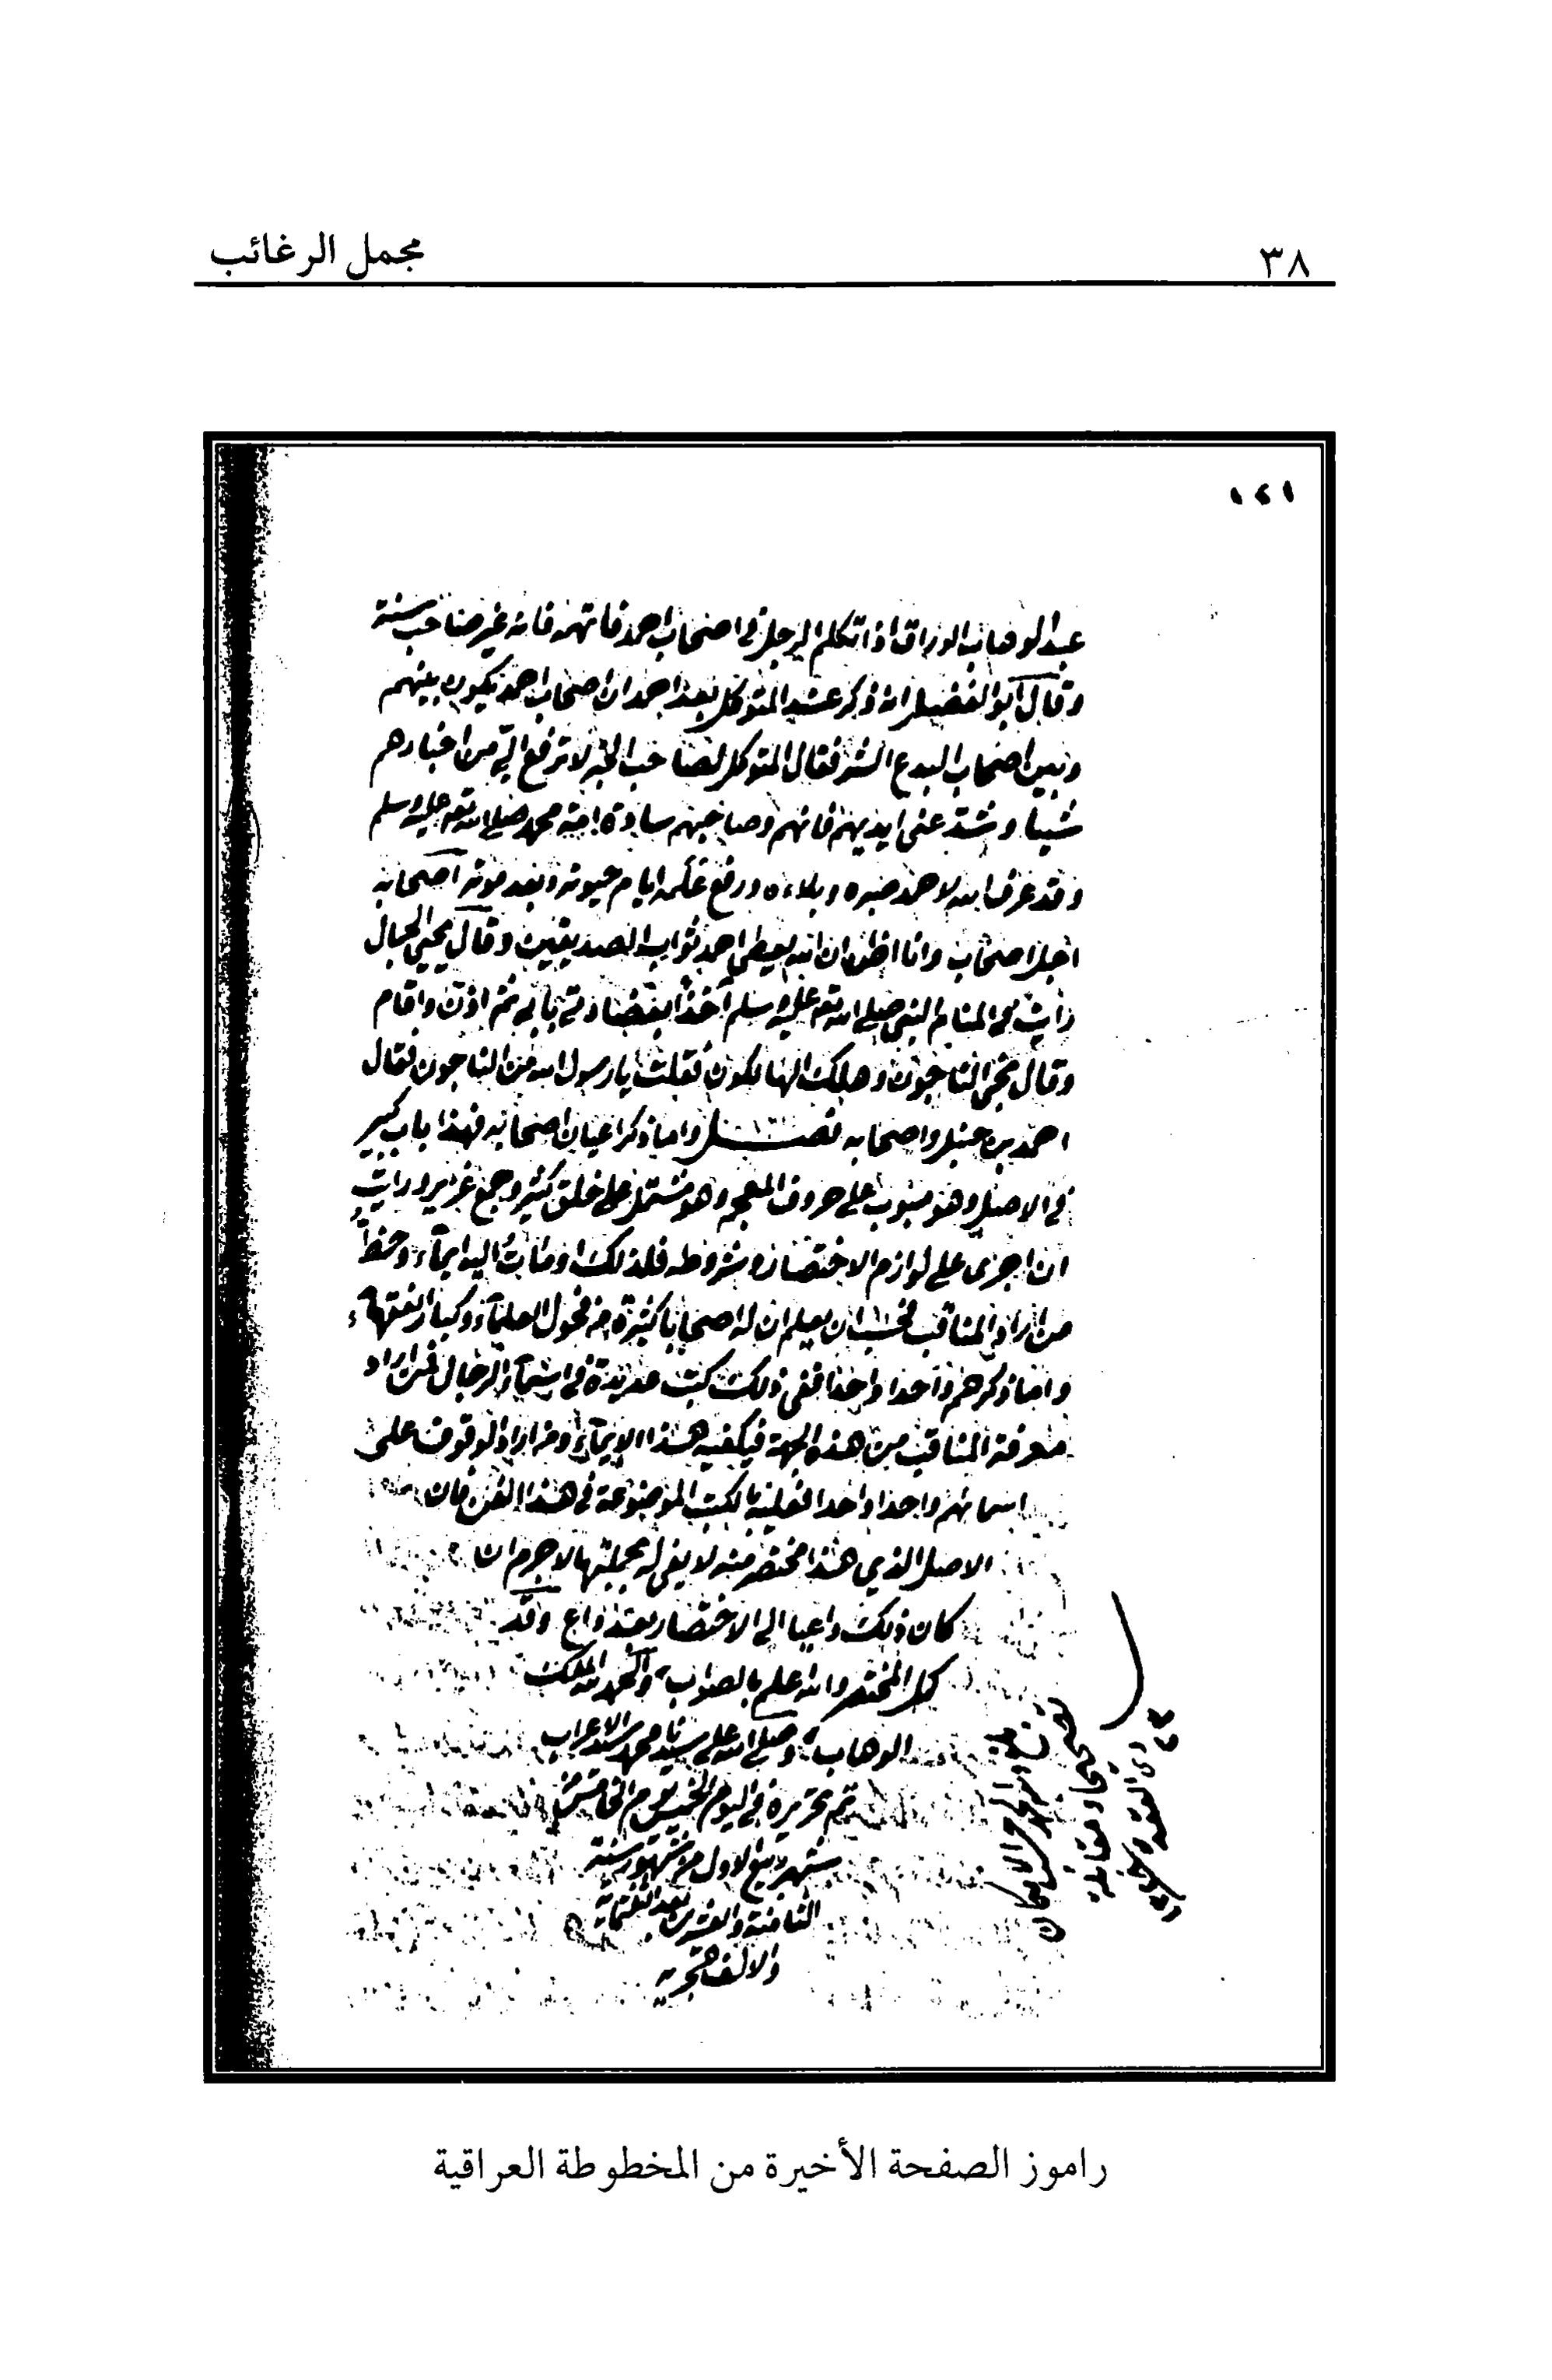 ٣٨
مجمل الرغائب
١٤١
عبد الوهاب الوراق اذا تكلم الرجل في اصحاب احمد فاتهمه فانه غير صاحب سنة
وقال ابو الفضل انه ذكر عند المتوكل بعد احمد ان اصحاب احمد يكون بينهم
وبين اصحاب البدع الشر فقال المتوكل لصاحب الخبر لا ترفع الي من اخبارهم
شيئا وشد على ايديهم فانهم وصاحبهم سادة امة محمد صلى الله تعم عليه وسلم
وقد عرف الله لاحمد صبره وبلاءه ورفع علمه ايام حيوته وبعد موته اصحابه
اجل اصحاب وانا اظن ان الله يعطي احمد ثواب الصديقين وقال يحيى الجبال
رايت في المنام النبي صلى الله تعم عليه وسلم آخذا بعضادتي بابي ثم اذن واقام
وقال نجى الناجون وهلك الهالكون فقلت يا رسول الله من الناجون فقال
احمد بن حنبل واصحابه فصل واما ذكر اعيان اصحابه فهذا باب كبير
في الاصل وهو مبوب على حروف المعجم وهو مشتمل على خلق كثير وجمع غزير ورايت
ان اجري على لوازم الاختصار وشروطه فلذلك اومات اليه ايماء وحظ
من اراد المناقب فحسب ان يعلم ان له اصحابا كثيرة من فحول العلماء وكبار الفقهاء
واما ذكرهم واحدا واحدا ففي ذلك كتب عديدة في اسماء الرجال فمن اراد
معرفة المناقب من هذه الجهة فيكفيه هذا الايماء ومن اراد الوقوف على
اسمائهم واحدا واحدا فعليه بالكتب الموضوعة في هذا الفن فان
الاصل الذي هذا مختصر منه لا يفي له بجملتها لا جرم ان
كان ذلك داعيا الى الاختصار بعد داع وقد
كمل المختصر والله اعلم بالصواب والحمد لله الملك
الوهاب وصلى الله على سيدنا محمد سيد الاعراب
تم تحريره في اليوم الخميس يوم
شهر ربيع الاول من شهور سنة
الثامنة والعشرين بعد الثلثماية
والالف هجرية
راموز الصفحة الأخيرة من المخطوطة العراقية